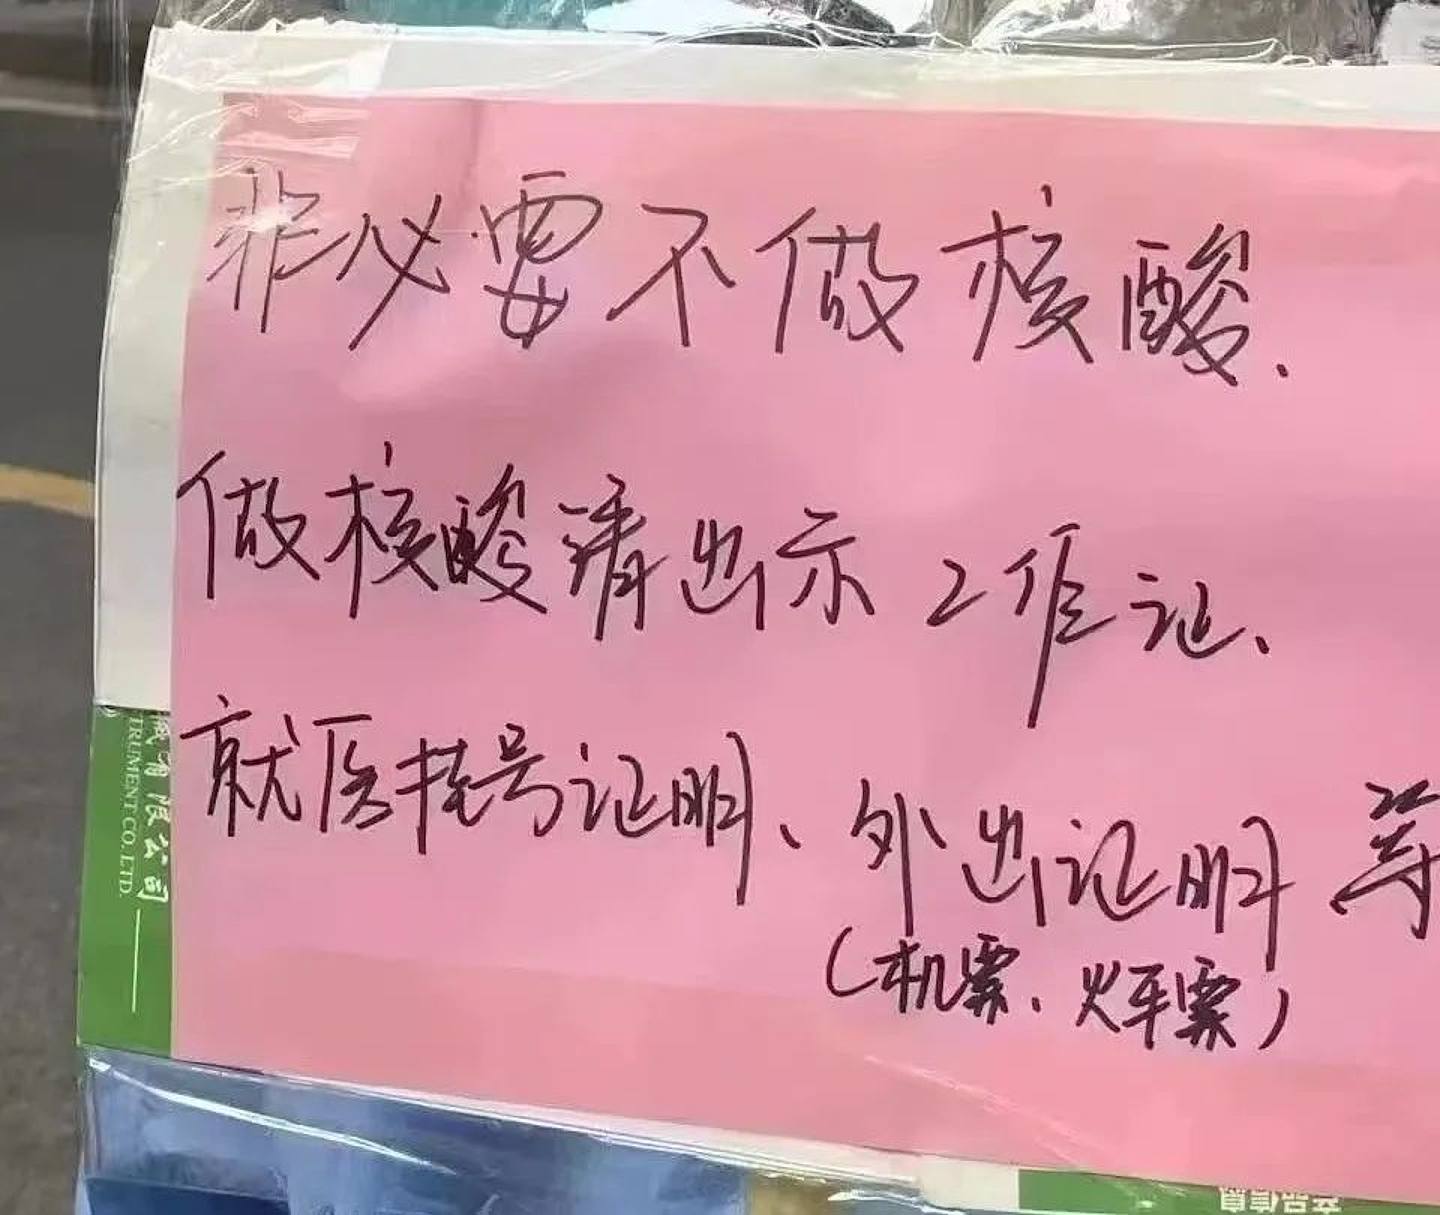 非必要不做核酸.
做核酸请出示工作证、
就医挂号证明、外出证明等
(机票、火车票)
限公司
TRUMENT CO.,LTD.
产品信息